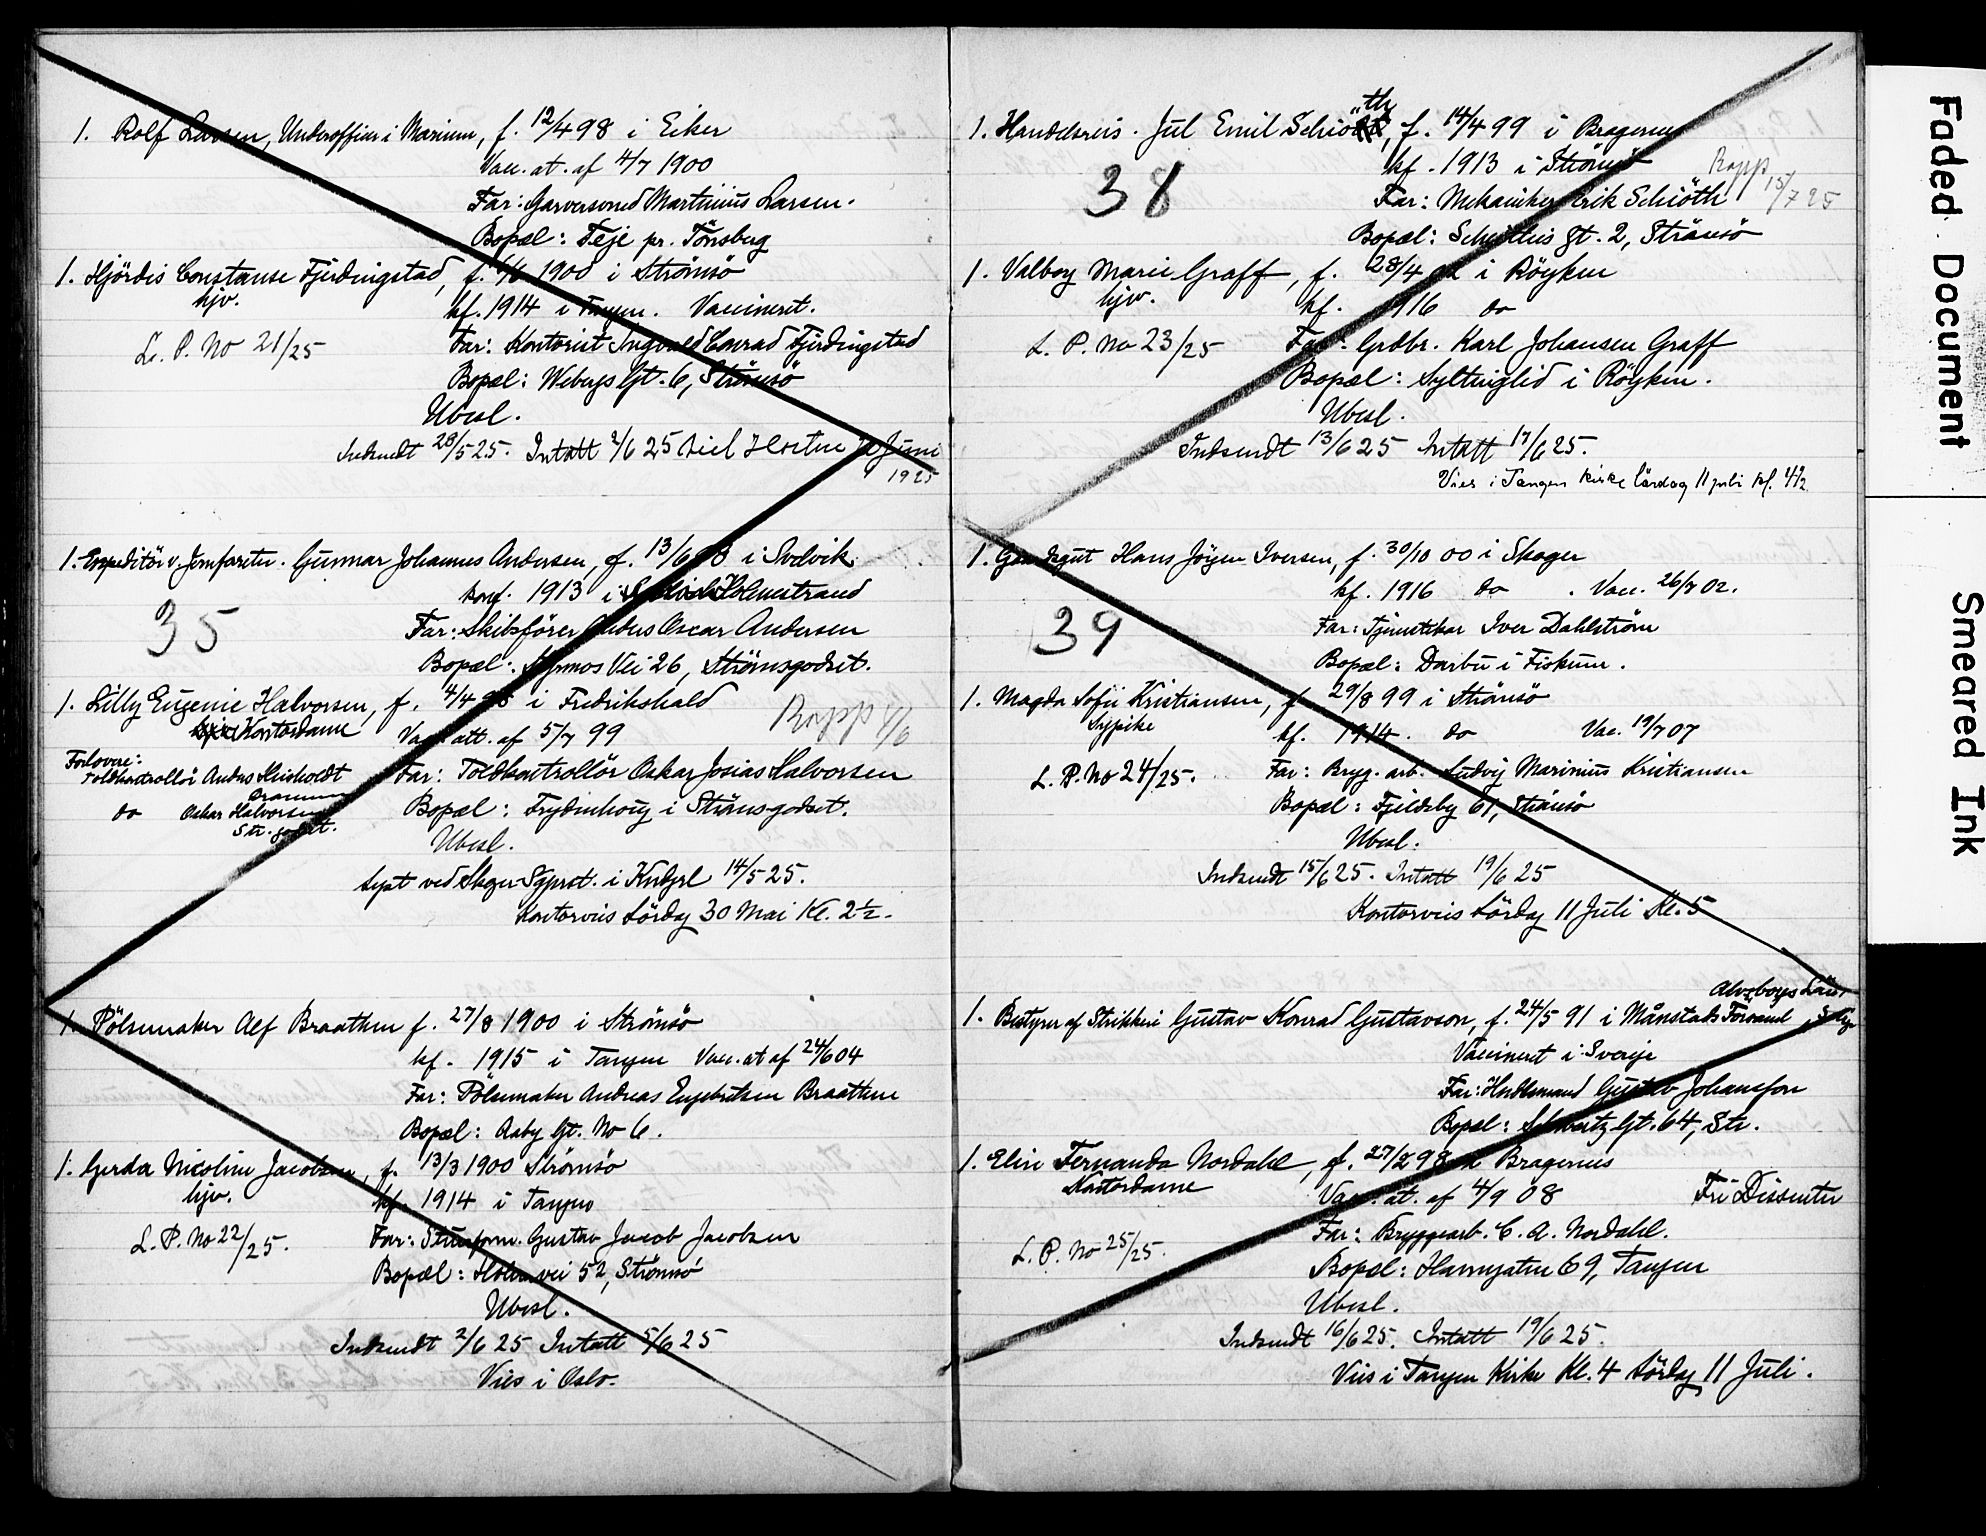 1. Rolf Larsen, Underofficer i Marinen, f. 12/4 98 i Eiker
Vacc. at. af 4/7 1900
Far: Garversvend Martinius Larsen.
Bopæl: Teje pr. Tönsberg
1. Hjördis Constanse Fjerdingstad, f. 1900 i Strömsö
hjv.
kf. 1914 i Tangen. Vaccineret.
L. P. No 21/25
Far: Kontorist Ingvald Conrad Fjerdingstad
Bopæl: Webergs Gt. 6, Strömsö
Ubesl.
Indsendt 28/5 25. Intatt 2/6 25 Juni
1925
1. Expeditör v. Jernfaretn. Gunnar Johannes Andersen, f. 13/6 98 i Svelvik
konf. 1913 i Holmestrand
35
Far: Skibsförer Anders Oscar Andersen
Bopæl: Vei 26, Strömsgodset.
1. Lilly Eugenie Halvorsen, f. 4/4 98 i Fredrikshald
Kontordame
Vacc. att. af 5/7 99
Rapp 8/6
Forlovere:
Toldkontrollör Anders Heisholdt
Drammen
Far: Toldkontrollör Oskar Josias Halvorsen
do Oskar Halvorsen
Str. godset.
Bopæl: Frydenhoug i Strömsgodset.
Ubesl.
Lyst ved Skoger Sgprst. i Knbgrl 14/5 25.
Kontorvies Lördag 30 Mai Kl. 2 1/2.
1. Pölsemaker Alf Braathen f. 27/8 1900 i Strömsö
kf. 1915 i Tangen Vacc. at af 24/6 04
Far: Pölsemaker Andreas Engebretsen Braathen
Bopæl: Aaby Gt. No 6.
1. Gerda Nicoline Jacobsen, f. 13/3 1900 Strömsö
hjv.
kf. 1914 i Tangen
L. P. No 22/25.
Far: Gustav Jacob Jacobsen
Bopæl: vei 52, Strömsö
Ubesl.
Indsendt 2/6 25 Intatt 5/6 25
Vies i Oslo.
1. Handelsreis. Jul Emil Schiöth, f. 14/4 99 i Bragernes
38
kf. 1913 i Strömsö
Rapp 15/7 25
Far: Mekaniker Erik Schiöth
Bopæl: Schultzes gt. 2, Strömsö
1. Valborg Marie Graff, f. 28/4 i Röyken
hjv.
kf. 1916 do
L. P. No 23/25
Far: Grdbr. Karl Johansen Graff
Bopæl: Syltinglid i Röyken.
Ubesl.
Indsendt 13/6 25 Intatt 17/6 25.
Vies i Tangen kirke lördag 11 juli kl. 4 1/2
1. Gaardsgut Hans Jörgen Iversen, f. 30/10 00 i Skoger
kf. 1916 do . Vacc. 26/7 02.
39
Far: Tjenestekar Iver Dahlström
Bopæl: Darbu i Fiskum.
1. Magda Sofie Kristiansen, f. 29/8 99 i Strömsö
Sypike
kf. 1914. do Vac. 19/7 07
L. P. No 24/25.
Far: Bryg. arb. Ludvig Marinius Kristiansen
Bopæl: Fjeldsby 61, Strömsö
Ubesl.
Indsendt 15/6 25. Intatt 19/6 25
Kontorvies Lördag 11 Juli Kl. 5
Alvsborgs Län
1. Bestyrer af Strikkeri Gustav Konrad Gustavson, f. 24/5 91 i Månstads Forsamd
Vaccineret i Sverje
Far: Gustav Johansson
Bopæl: Schwartz Gt. 64, Str.
1. Elise Fernanda Nordahl, f. 27/2 98 i Bragernes
Kontordame
Vacc. at. af 4/9 08
Fri Dissenter
L. P. No 25/25.
Far: Bryggearb. C. A. Nordahl.
Bopæl: Havnegaten 69, Tangen
Ubesl.
Indsendt 16/6 25. Intatt 19/6 25.
Vies i Tangen Kirke Kl. 4 Lördag 11 Juli.
Faded Document
Smeared Ink